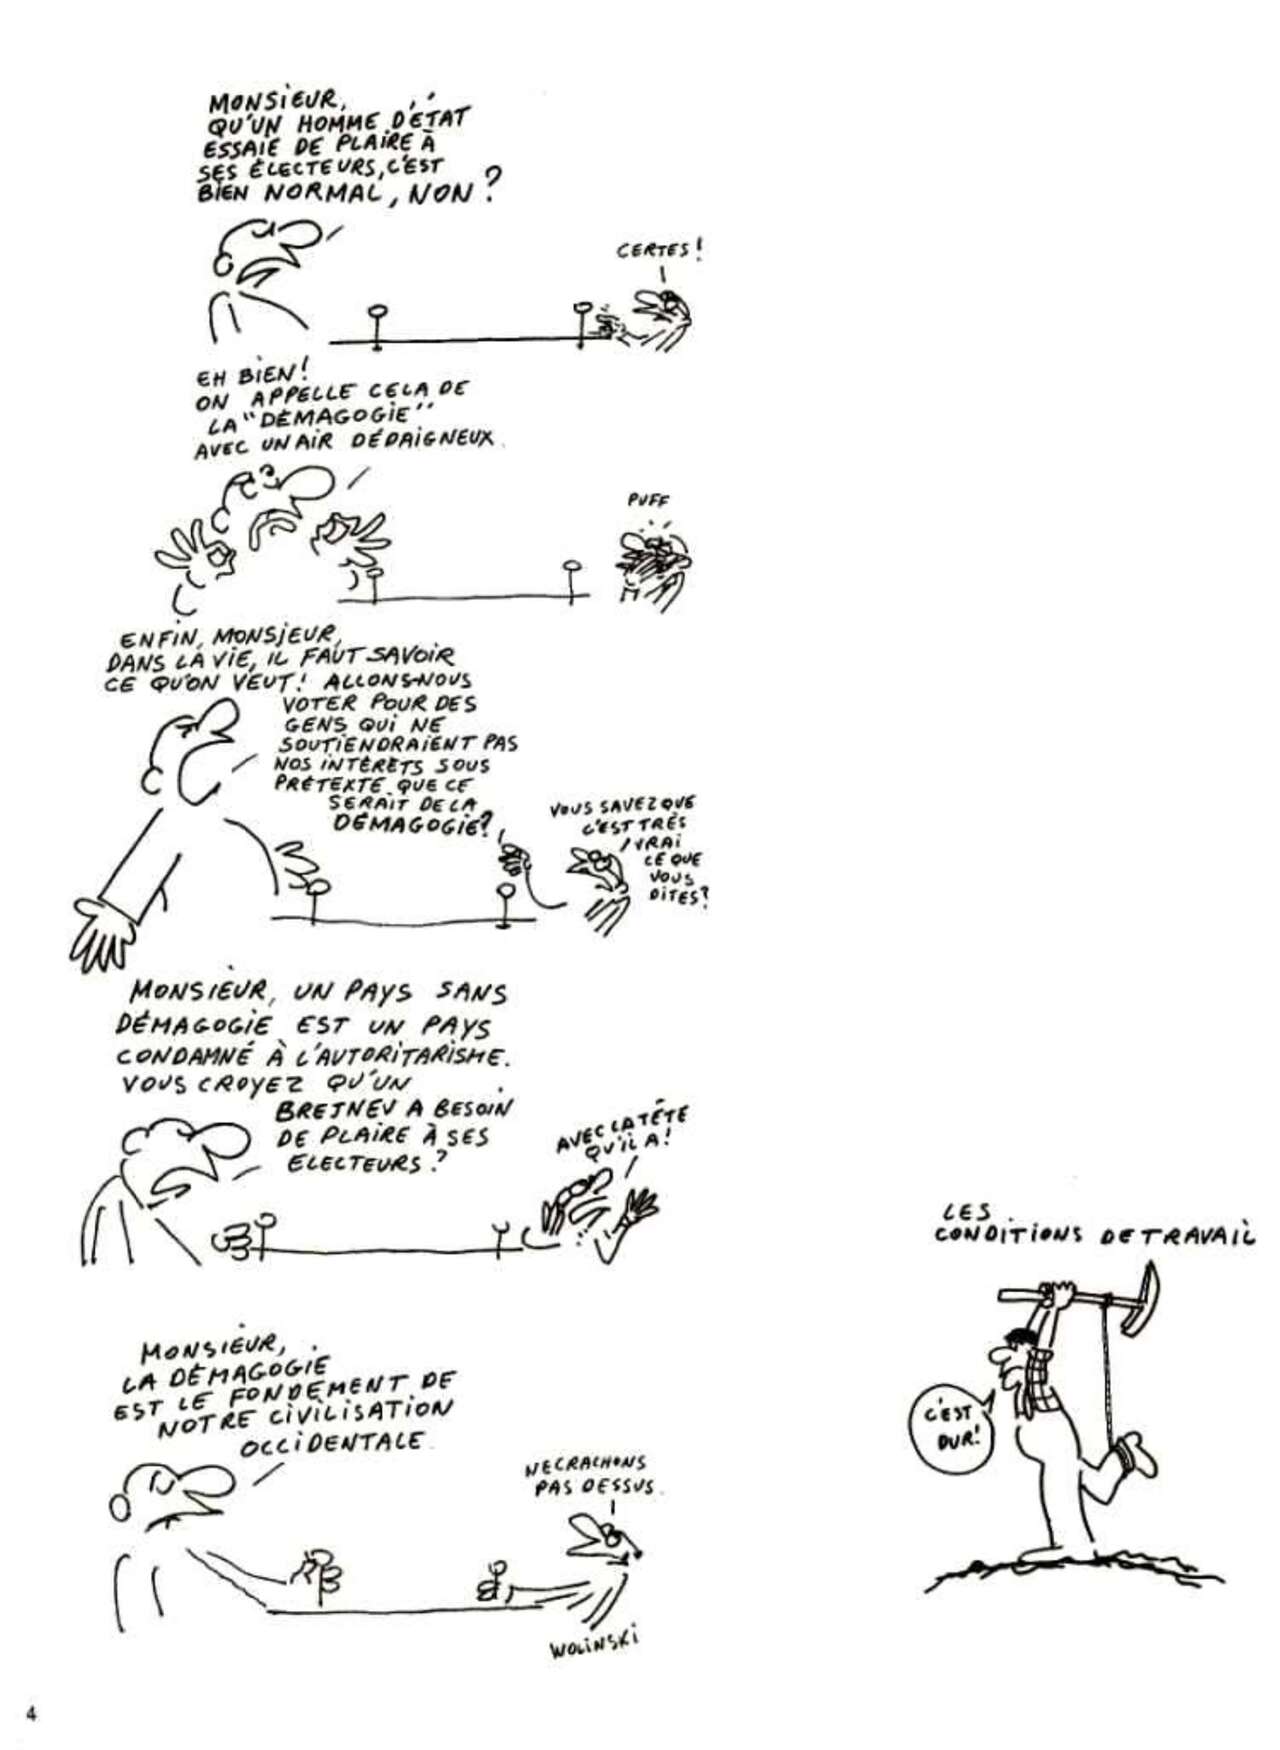 MONSIEUR,
QU'UN HOMME D'ÉTAT
ESSAIE DE PLAIRE À
SES ÉLECTEURS, C'EST
BIEN NORMAL, NON ?
CERTES !
EH BIEN !
ON APPELLE CELA DE
LA "DÉMAGOGIE"
AVEC UN AIR DÉDAIGNEUX.
PUFF
ENFIN, MONSIEUR,
DANS LA VIE, IL FAUT SAVOIR
CE QU'ON VEUT ! ALLONS-NOUS
VOTER POUR DES
GENS QUI NE
SOUTIENDRAIENT PAS
NOS INTÉRÊTS SOUS
PRÉTEXTE QUE CE
SERAIT DE LA
DÉMAGOGIE ?
VOUS SAVEZ QUE
C'EST TRÈS
VRAI
CE QUE
VOUS
DITES ?
MONSIEUR, UN PAYS SANS
DÉMAGOGIE EST UN PAYS
CONDAMNÉ À L'AUTORITARISME.
VOUS CROYEZ QU'UN
BREJNEV A BESOIN
DE PLAIRE À SES
ELECTEURS ?
AVEC LA TÊTE
QU'IL A !
MONSIEUR,
LA DÉMAGOGIE
EST LE FONDEMENT DE
NOTRE CIVILISATION
OCCIDENTALE.
NE CRACHONS
PAS DESSUS.
WOLINSKI
LES
CONDITIONS DE TRAVAIL
C'EST
DUR !
4